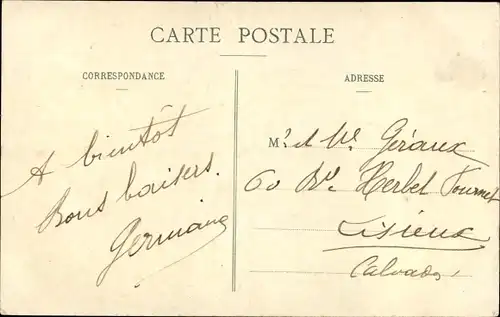 CARTE POSTALE
CORRESPONDANCE
A bientôt
Bons baisers.
Germaine
ADRESSE
M.r et Me. Géraux
60 Bd. Herbet Fournet
Lisieux
Calvados